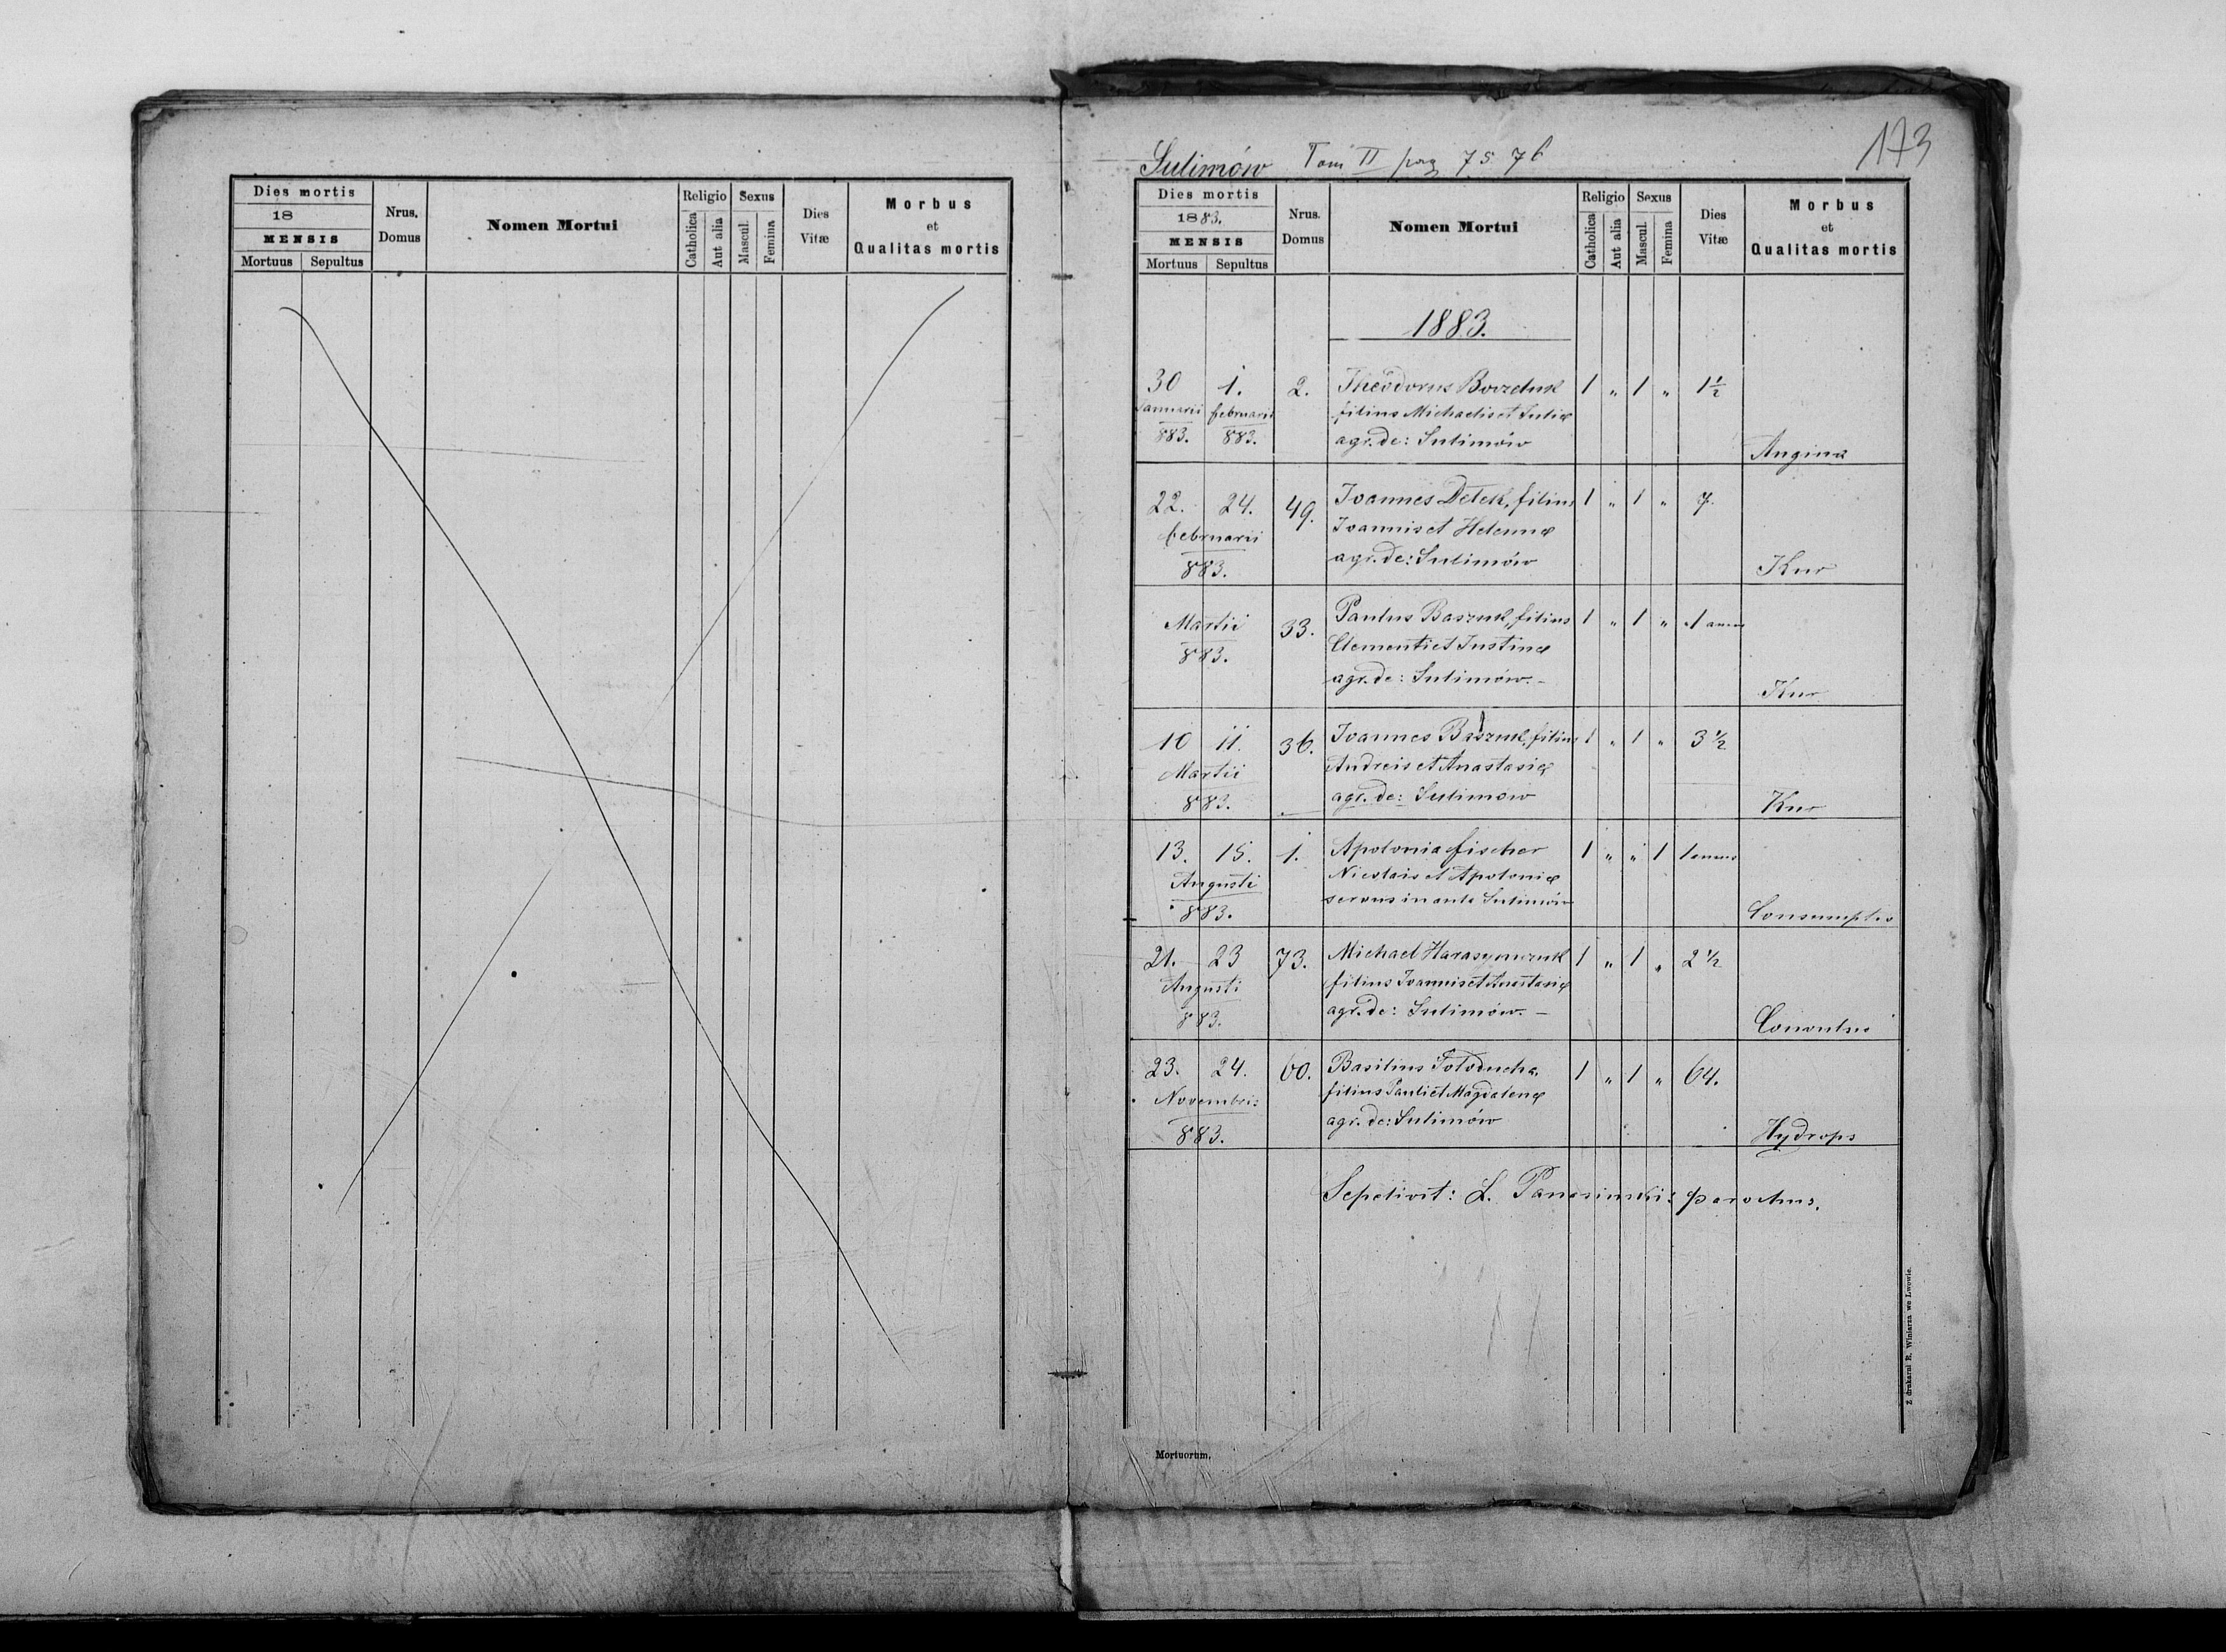 Dies mortis
18
MENSIS
Mortuus Sepultus
Nrus.
Domus
Nomen Mortui
Religio
Catholica
Aut alia
Sexus
Mascul.
Femina
Dies
Vitæ
Morbus
et
Qualitas mortis
Sulimów Tom II pag 75 76
173
Dies mortis
1883.
MENSIS
Mortuus Sepultus
Nrus.
Domus
Nomen Mortui
Religio
Catholica
Aut alia
Sexus
Mascul.
Femina
Dies
Vitæ
Morbus
et
Qualitas mortis
1883.
30 1. 2. Theodorus 1 " 1 " 1½
Januarii februarii filius Michaelis et Juliæ
883. 883. agr. de: Sulimów
Angina
22. 24. 49. Joannes Detek, filius 1 " 1 " 7.
februarii Joannis et Helennæ
883. agr. de: Sulimów
Kur
Martii 33. Paulus Baszuk, filius 1 " 1 " 1 annus
883. Clementi et Justinæ
agr. de: Sulimów. -
Kur
10 11. 36. Joannes filius 1 " 1 " 3½
Martii Andreis et Anastasiæ
883. agr. de: Sulimow
Kur
13. 15. 1. Apolonia fischer 1 " " 1 1 annus
Augusti Nicolais et Apoloniæ
883. servus in aula Sulimów
Consumptio
21. 23 73. Michael Harasymczuk 1 " 1 " 2½
Augusti filius Joannis et Anastasiæ
883. agr. de: Sulimów. -
Convulsio
23. 24. 60. Basilius Tołoducha, 1 " 1 " 64.
Novembris filius Pauli et Magdalenæ
883. agr. de: Sulimów
Hydrops
Sepelivit: L. parochus.
Z drukarni E. Winiarza we Lwowie.
Mortuorum.